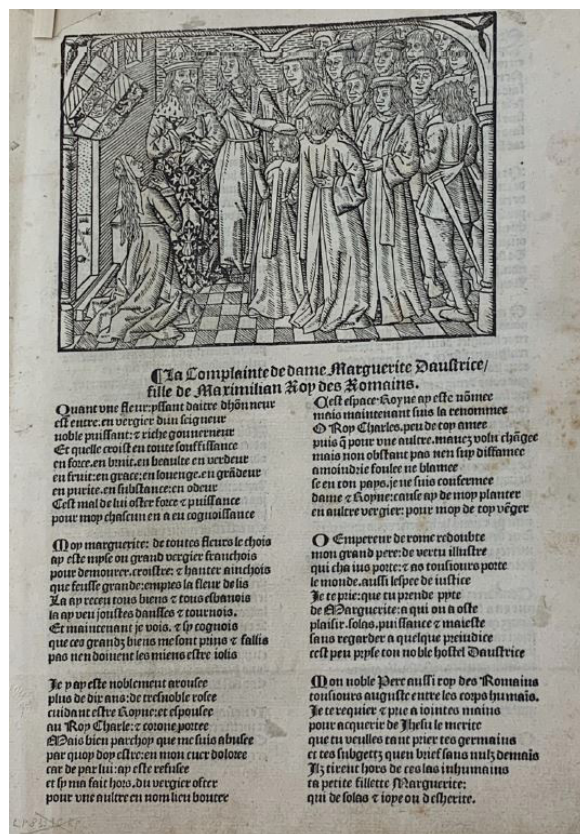 ¶La Complainte de dame Marguerite Daustrice/
fille de Maximilian Roy des Romains.
Quant vne fleur: yssant daitre dhõnneur
est entre. en vergier dun seigneur
noble puissant: ⁊ riche gouuerneur
Et quelle croist en toute souffissance
en force. en bruit. en beaulte en verdeur
en fruit: en grace: en louenge. en grãdeur
en purite. en substance: en odeur
Cest mal de lui oster force ⁊ puissance
pour moy chascun en a eu cognoissance
Moy marguerite: de toutes fleurs le chois
ay este myse ou grand vergier franchois
pour demourer. croistre: ⁊ hanter ainchois
que feusse grande: empres la fleur de lis
La ay receu tous biens ⁊ tous esbanois
la ay veu joustes dansses ⁊ tournois.
Et maintenant je vois. ⁊ sy cognois
que ces grandz biens me sont prins ⁊ fallis
pas nen doiuent les miens estre iolis
Je y ay este noblement arousee
plus de dix ans: de tresnoble rosee
cuidant estre Royne: et espousee
au Roy Charle: ⁊ corone portee
Mais bien parchoy que me suis abusee
par quoy doy estre: en mon cuer doloree
car de par lui: ay este refusee
et sy ma fait hors. du vergier oster
pour vne aultre en nom lieu bouter
Cest espace. Royne ay este nõmee
mais maintenant suis la renommee
O Roy Charles. peu de toy amee
puis q̃ pour vne aultre. mauez volu chãgee
mais non obstant pas nen suy diffamee
amoindrie foulee ne blamee
se en ton pays. je ne suis confermee
dame ⁊ Royne: cause ay de moy planter
en aultre vergier: pour moy de toy vẽger
O Empereur de rome redoubte
mon grand pere: de vertu illustre
qui cha ius porte: ⁊ as tousiours porte
le monde. aussi lespee de iustice
Je te prie: que tu prende pyte
de Marguerite: a qui on a oste
plaisir. solas. puissance ⁊ maieste
sans regarder a quelque preiudice
cest peu pryse ton noble hostel Daustrice
Mon noble Pere aussi roy des Romains
tousiours auguste entre les corps humais.
Je te requier ⁊ prie a iointes mains
pour acquerir de Jhesu le merite
que tu veulles tant prier tes germains
et tes subgettz quen brief sans nulz demais
Ilz tirent hors de ces las inhumains
ta petite fillette Marguerite:
qui de solas ⁊ ioye on desherite.